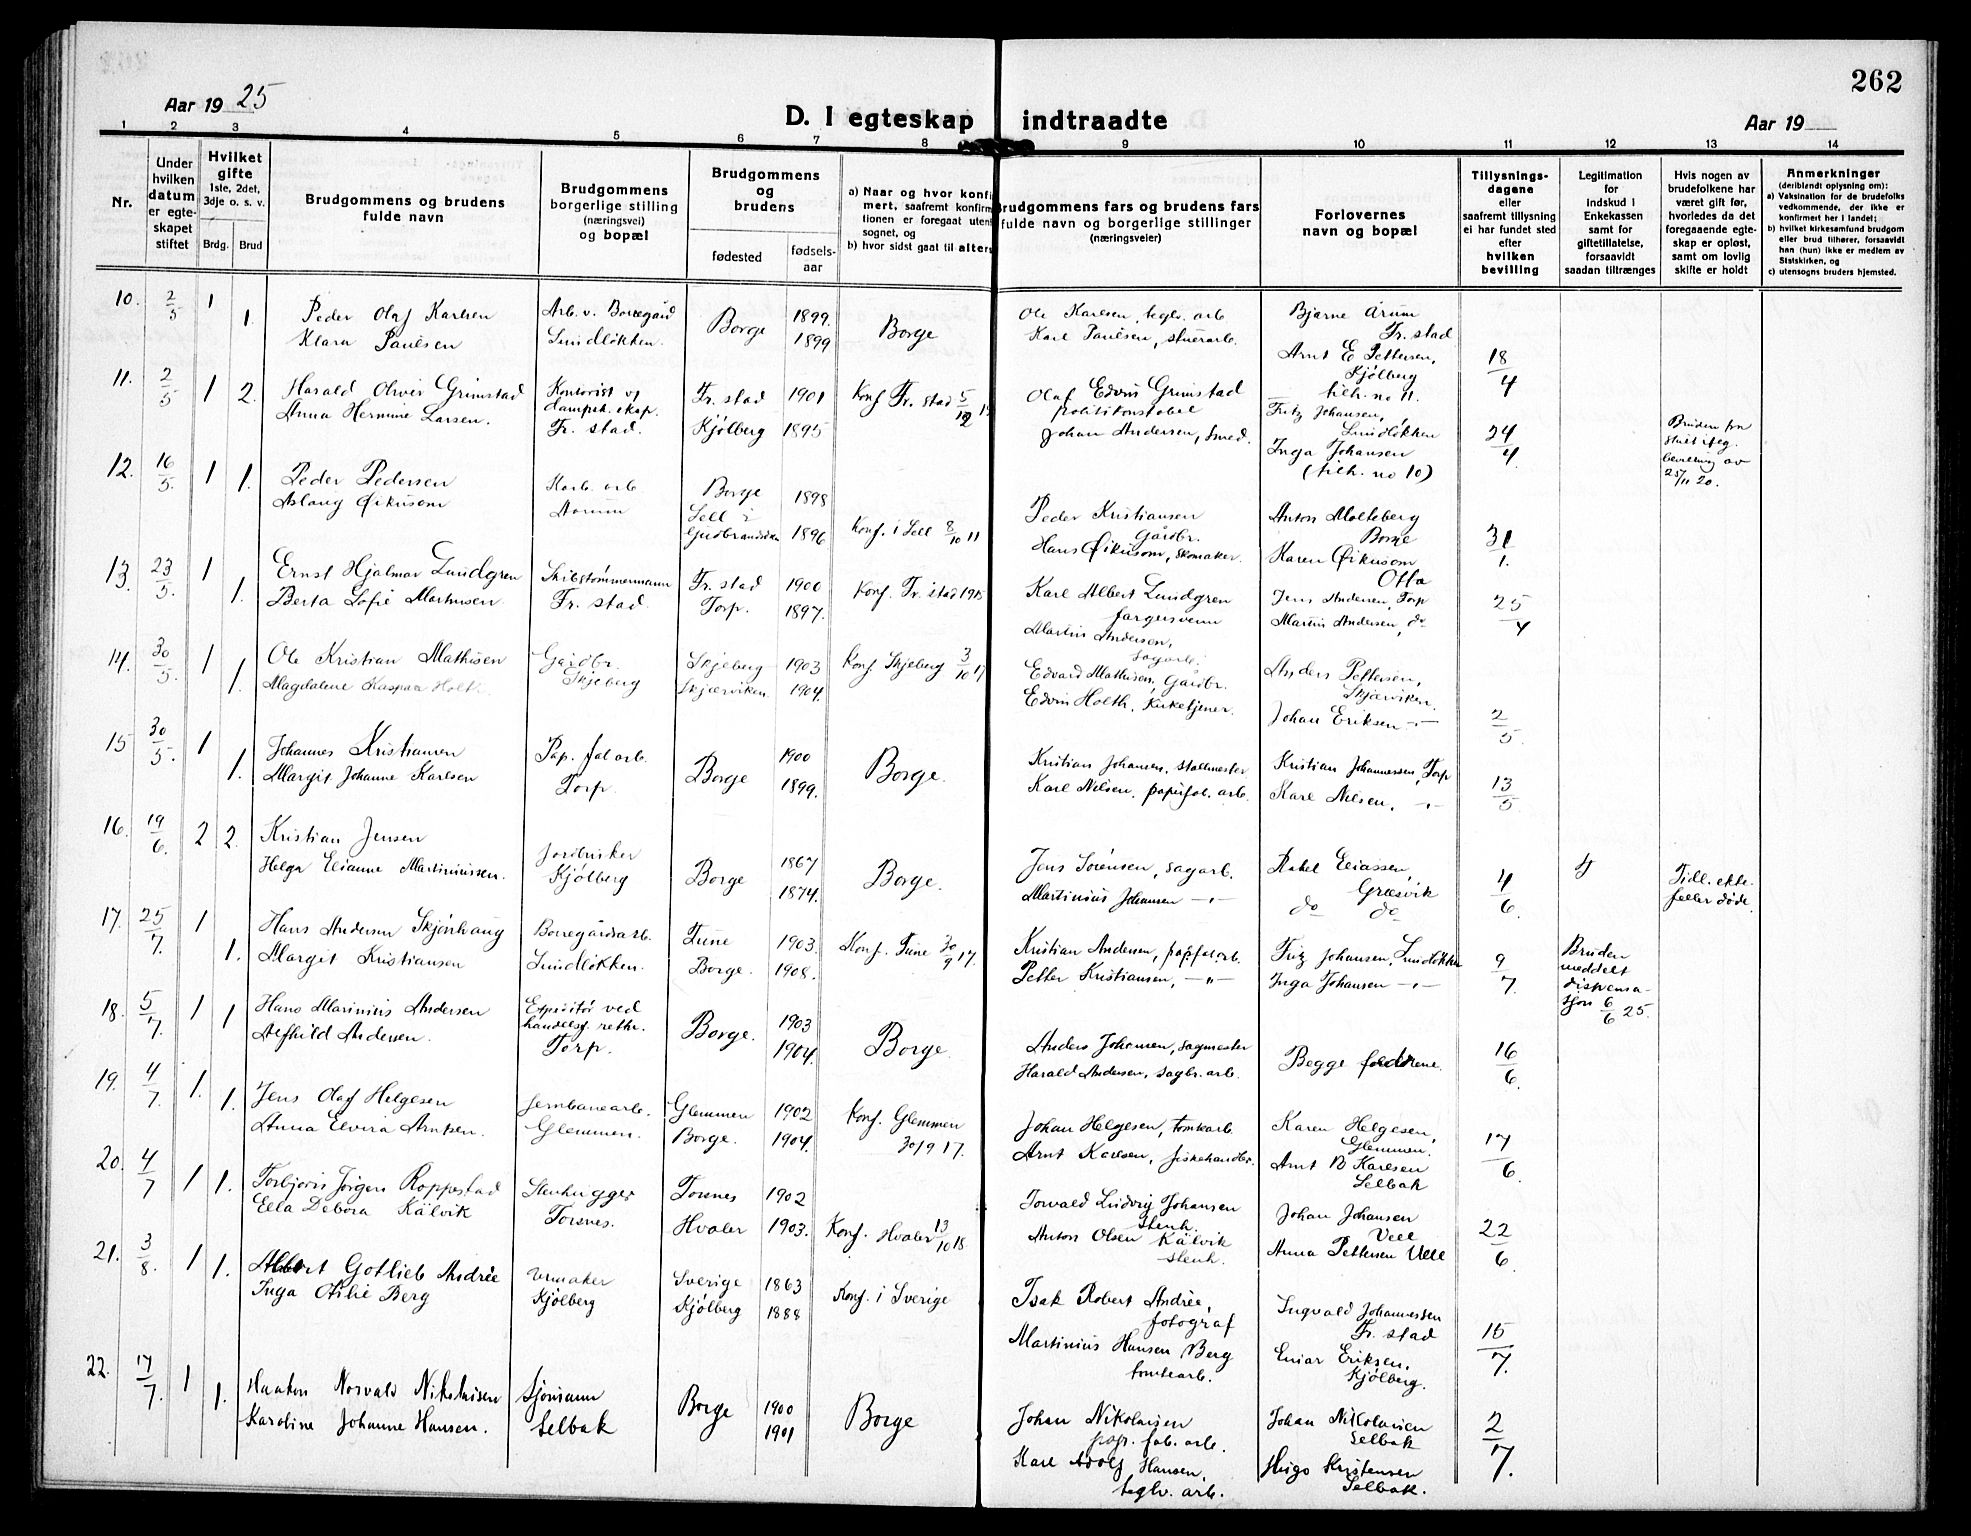 262
Aar 19 25
D. I egteskap indtraadte
Aar 19
1 2 3 4 5 6 7 8 9 10 11 12 13 14
Nr.
Under hvilken datum er egteskapet stiftet
Hvilket gifte
1ste, 2det, 3dje o. s. v.
Brdg. Brud
Brudgommens og brudens fulde navn
Brudgommens borgerlige stilling (næringsvei) og bopæl
Brudgommens og brudens
fødested
fødselsaar
a) Naar og hvor konfirmert, saafremt konfirmationen er foregaat utenfor sognet, og
b) hvor sidst gaat til alters
Brudgommens fars og brudens fars fulde navn og borgerlige stillinger (næringsveier)
Forlovernes navn og bopæl
Tillysningsdagene eller saafremt tillysning ei har fundet sted efter hvilken bevilling
Legitimation for indskud i Enkekassen samt for giftetillatelse, forsaavidt saadan tiltrænges
Hvis nogen av brudefolkene har været gift før, hvorledes da det foregaaende egteskap er opløst, samt om lovlig skifte er holdt
Anmerkninger
(deriblandt oplysning om):
a) Vaksination for de brudefolks vedkommende, der ikke er konfirmert her i landet;
b) hvilket kirkesamfund brudgom eller brud tilhører, forsaavidt han (hun) ikke er medlem av Statskirken, og
c) utensogns bruders hjemsted.
10. 2/5 1 1. Peder Olaf Karlsen Arb. v. Borregård Borge 1899. Borge Ole Karlsen, teglv. arb Bjarne Årum Fr. stad 18/4
Klara Paulsen Lundløkken. 1899 Karl Paulsen, stuerarb. Arnt E Pettersen, Kjølberg
11. 2/5 1 2. Harald Oliver Grimstad Kontorist v/ dampsk. eksp. Fr. stad. Fr. stad 1901 Konf Fr. stad 5/12 Olaf Edvin Grimstad politikonstabel tilh. no 11. Fritz Johansen, Lundløkken 24/4
Anna Hermine Larsen. Kjølberg 1895 Johan Andersen, smed. Inga Johansen (tilh. no 10)
Bruden fra av 25/11 20.
12. 16/5. 1 1. Peder Pedersen arb Borge 1898 Peder Kristiansen Gårdbr. Anton Molteberg Borge 31/1.
Aslaug Øikusom Sell i Gudbrandsdalen 1896 Konf. i Sell 8/10 11 Hans Øikusom, skomaker. Karen Øikusom Otta
13. 23/5. 1 1. Ernst Hjalmar Lundgren Skibstømmermann Fr. stad. Fr. stad 1900 Konf. Fr. stad 1915 Karl Albert Lundgren fargersvenn Jens Andersen, Torp 25/4
Berta Sofie Martinsen. Torp. 1897. Martin Andersen, sagarb. Martin Andersen, do
14. 30/5. 1 1. Ole Kristian Mathisen Gårdbr. Skjeberg Skjeberg 1903 Konf Skjeberg 3/10 17 Edvard Mathisen, Gårdbr. Anders Pettersen, Skjærviken. 2/5.
Magdalene Kaspara Holt. Skjærviken 1904. Edvin Holth, Kirketjener. Johan Eriksen -"-
15 30/5. 1 1. Johannes Kristiansen Pap. fab arb. Torp. Borge 1900 Borge. Kristian Johansen, stallmester Kristian Johannessen, Torp 13/5
Margit Johanne Karlsen 1899. Karl Nilsen, papirfab. arb. Karl Nilsen, -"-
16. 19/6. 2 2. Kristian Jensen Jordbruker Kjølberg Borge 1867 Borge. Jens Sørensen, sagarb. Rakel Eliassen, Græsvik 4/6.
Helga Elianne Martiniussen. 1874. Martinius Johansen -"- do do
Tidl. ektefeller døde.
17. 25/7. 1 1. Hans Andersen Skjønhaug Borregårdsarb. Lundløkken. Tune 1903. Konf. Tune 30/9 17. Kristian Andersen, papfabarb. Fritz Johansen, Lundløkken 9/7.
Margit Kristiansen Borge. 1908. Petter Kristiansen, -"- Inga Johansen -"-
Bruden meddelt dispensasjon 6/6 25.
18. 5/7. 1 1 Hans Marinius Andersen Ekspeditør ved handelsf. Torp. Borge. 1903 Borge. Anders Johansen, sagmester Begge fedrene. 16/6.
Alfhild Andersen. 1904. Harald Andersen, sagbr. arb.
19. 4/7. 1. 1. Jens Olaf Helgesen Jernbanearb. Glemmen. Glemmen 1902 Konf. Glemmen 30/9 17. Johan Helgesen, tomtearb. Karen Helgesen, Glemmen. 17/6
Anna Elvira Arntsen. Borge. 1904. Arnt Karlsen, fiskehandler. Arnt B Karlsen Selbak
20. 4/7 1 1. Torbjørn Jørgen Roppestad Stenhugger Torsnes. Torsnes 1902 Torvald Ludvig Johansen stenh. Johan Johansen Velle 22/6.
Ella Debora Kålvik Hvaler 1903. Konf. Hvaler 13/10 18 Anton Olsen Kålvik stenh. Anna Pettersen Ulle
21. 3/8. 1 1. Albert Gotlieb Andrée Urmaker Kjølberg Sverige 1863 Konf. i Sverige Isak Robert Andrée, fotograf Ingvald Johannessen Fr. stad 15/7.
Inga Otilie Berg Kjølberg 1888 Martinius Hansen Berg tomtearb. Einar Eriksen, Kjølberg.
22. 17/7. 1 1. Haakon Norvald Nikolaisen Sjømann Selbak Borge 1900 Borge Johan Nikolaisen pap. fab. arb. Johan Nikolaisen Selbak 2/7.
Karoline Johanne Hansen. 1901 Karl Adolf Hansen, teglv. arb. Hugo Kristensen Selbak.